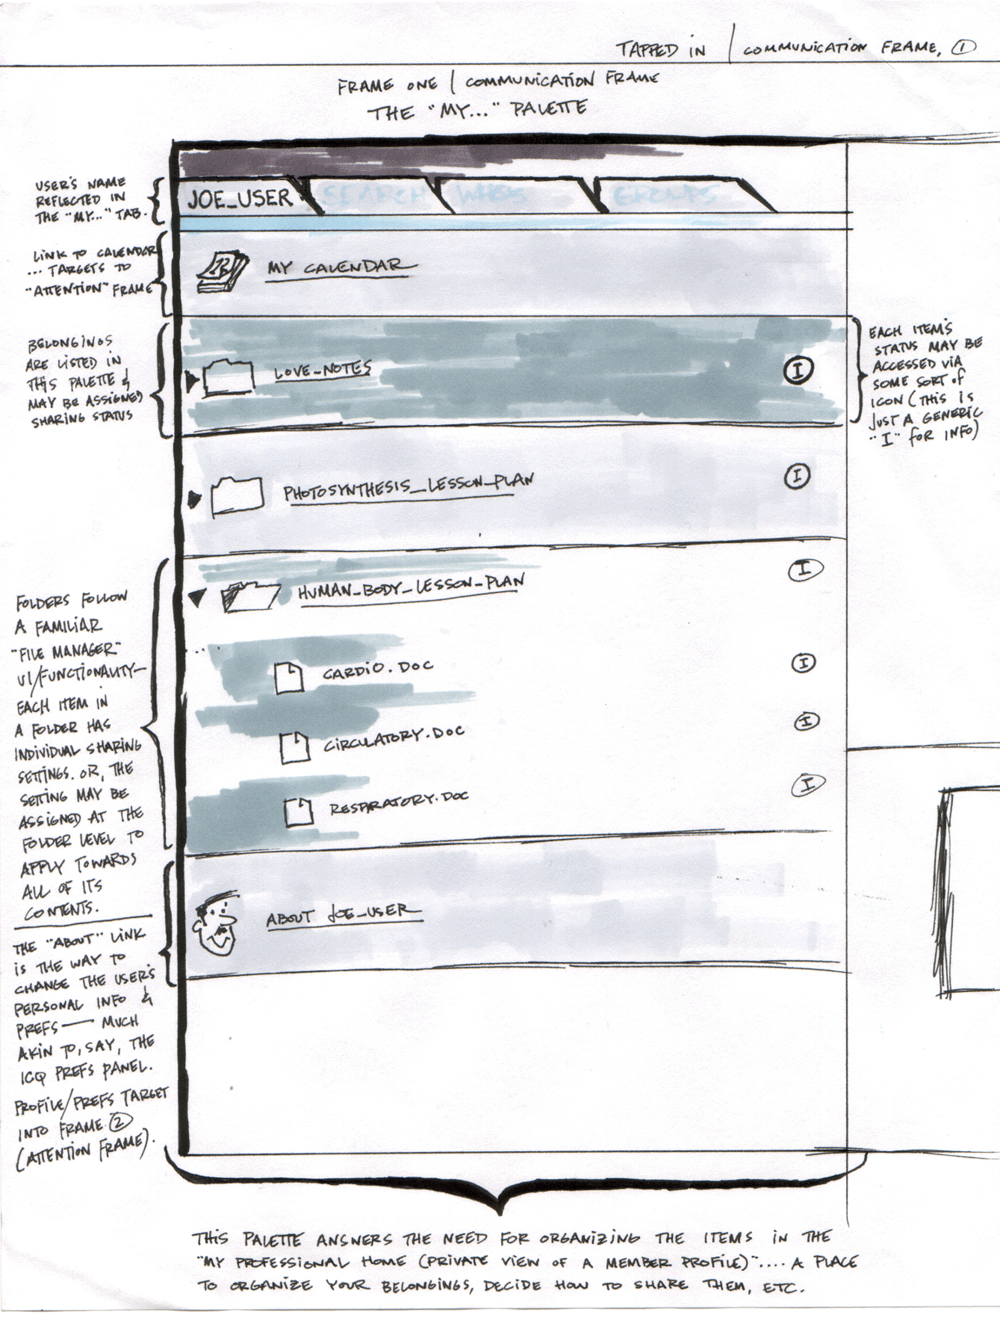 TAPPED IN | COMMUNICATION FRAME, 1
FRAME ONE | COMMUNICATION FRAME
THE "MY..." PALETTE
USER'S NAME
REFLECTED IN
THE "MY..." TAB.
JOE_USER
SEARCH
WHO'S
GROUPS
LINK TO CALENDAR
... TARGETS TO
"ATTENTION" FRAME
MY CALENDAR
BELONGINGS
ARE LISTED IN
THIS PALETTE &
MAY BE ASSIGNED
SHARING STATUS
LOVE_NOTES
I
EACH ITEM'S
STATUS MAY BE
ACCESSED VIA
SOME SORT OF
ICON (THIS IS
JUST A GENERIC
"I" FOR INFO)
PHOTOSYNTHESIS_LESSON_PLAN
I
FOLDERS FOLLOW
A FAMILIAR
"FILE MANAGER"
UI/FUNCTIONALITY—
EACH ITEM IN
A FOLDER HAS
INDIVIDUAL SHARING
SETTINGS. OR, THE
SETTING MAY BE
ASSIGNED AT THE
FOLDER LEVEL TO
APPLY TOWARDS
ALL OF ITS
CONTENTS.
HUMAN_BODY_LESSON_PLAN
I
CARDIO.DOC
I
CIRCULATORY.DOC
I
RESPIRATORY.DOC
I
THE "ABOUT" LINK
IS THE WAY TO
CHANGE THE USER'S
PERSONAL INFO &
PREFS — MUCH
AKIN TO, SAY, THE
ICQ PREFS PANEL.
PROFILE/PREFS TARGET
INTO FRAME 2
(ATTENTION FRAME).
ABOUT JOE_USER
THIS PALETTE ANSWERS THE NEED FOR ORGANIZING THE ITEMS IN THE
"MY PROFESSIONAL HOME (PRIVATE VIEW OF A MEMBER PROFILE)".... A PLACE
TO ORGANIZE YOUR BELONGINGS, DECIDE HOW TO SHARE THEM, ETC.